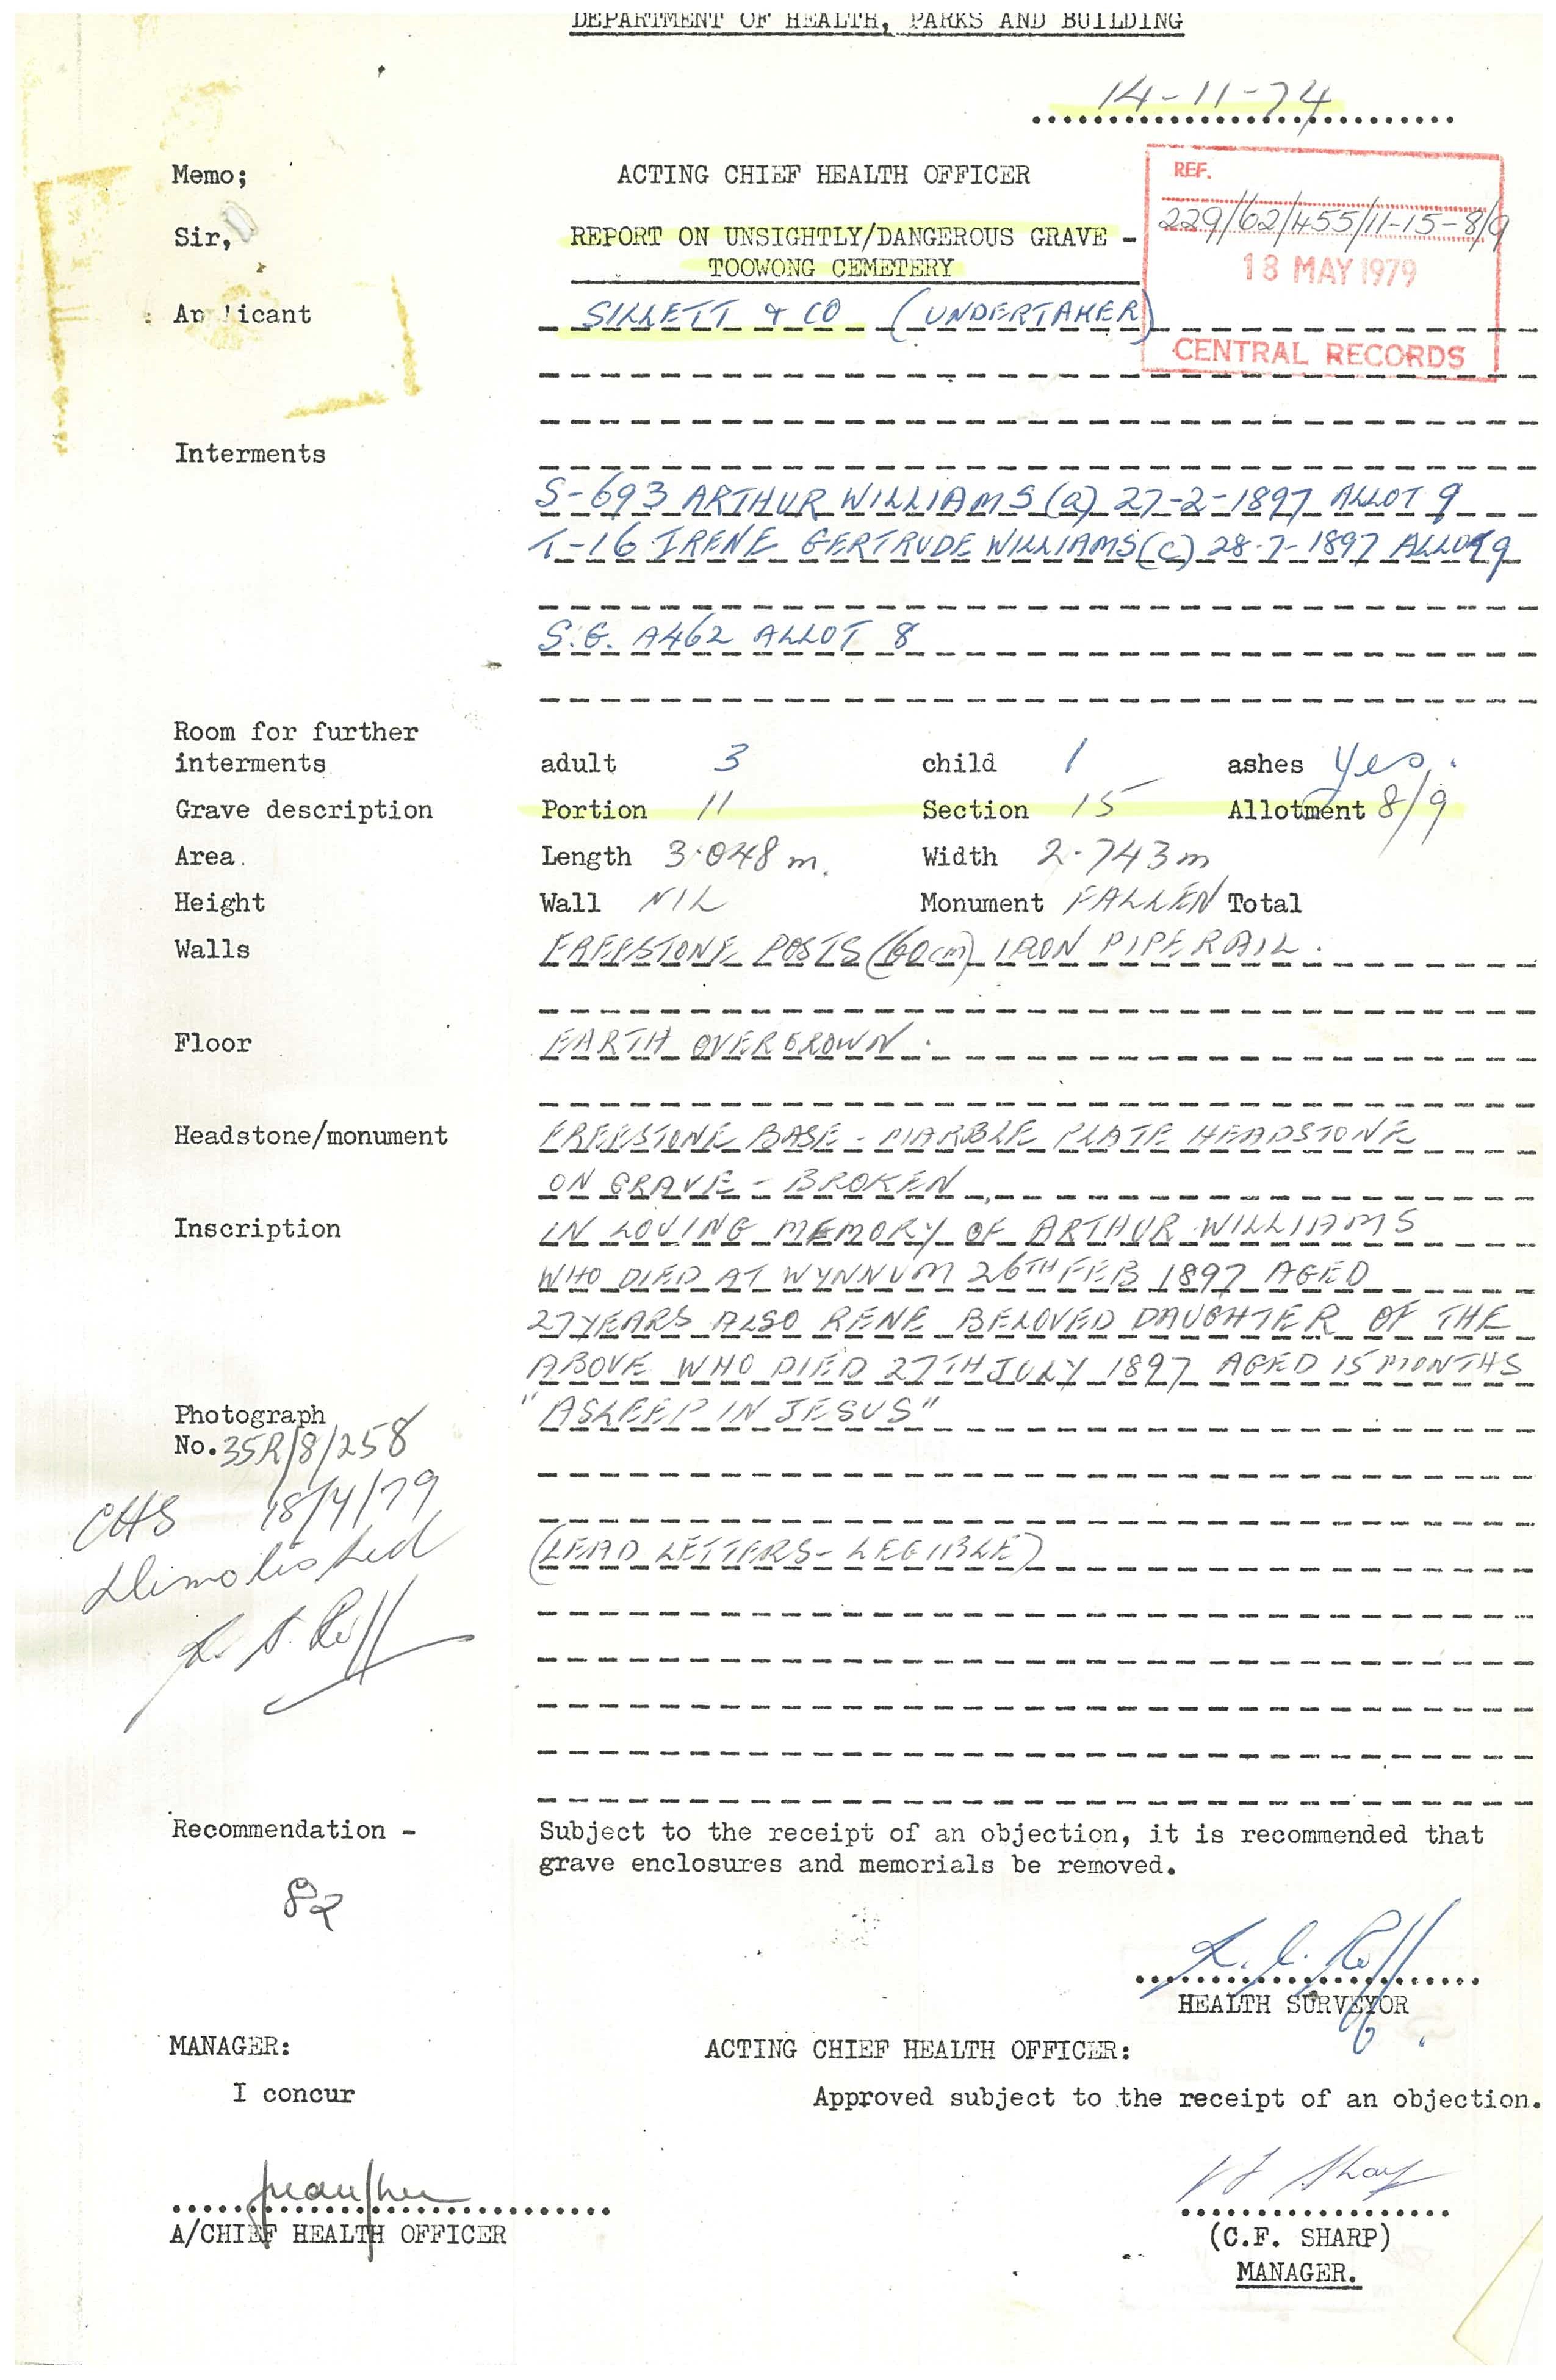 DEPARTMENT OF HEALTH, PARKS AND BUILDING
14-11-74
Memo;
ACTING CHIEF HEALTH OFFICER
REF.
229/62/455/11-15-8/9
18 MAY 1979
CENTRAL RECORDS
Sir,
REPORT ON UNSIGHTLY/DANGEROUS GRAVE -
TOOWONG CEMETERY
Applicant SILLETT & CO (UNDERTAKER)
Interments
S-693 ARTHUR WILLIAMS (a) 27-2-1897 ALLOT 9
T-16 IRENE GERTRUDE WILLIAMS (c) 28-7-1897 ALLOT 9
S.G. A462 ALLOT 8
Room for further
interments adult 3 child 1 ashes yes.
Grave description Portion 11 Section 15 Allotment 8/9
Area. Length 3.048 m. Width 2.743 m
Height Wall NIL Monument FALLEN Total
Walls FREESTONE POSTS (60cm) IRON PIPE RAIL.
Floor EARTH OVERGROWN.
Headstone/monument FREESTONE BASE - MARBLE PLATE HEADSTONE
ON GRAVE - BROKEN
Inscription IN LOVING MEMORY OF ARTHUR WILLIAMS
WHO DIED AT WYNNUM 26TH FEB 1897 AGED
27 YEARS ALSO RENE BELOVED DAUGHTER OF THE
ABOVE WHO DIED 27TH JULY 1897 AGED 15 MONTHS
"ASLEEP IN JESUS"
Photograph
No. 35R/8/258
CHS 18/4/79
Dimolished
(LEAD LETTERS - LEGIBLE)
Recommendation - Subject to the receipt of an objection, it is recommended that
grave enclosures and memorials be removed.
HEALTH SURVEYOR
MANAGER: ACTING CHIEF HEALTH OFFICER:
I concur Approved subject to the receipt of an objection.
A/CHIEF HEALTH OFFICER
(C.F. SHARP)
MANAGER.